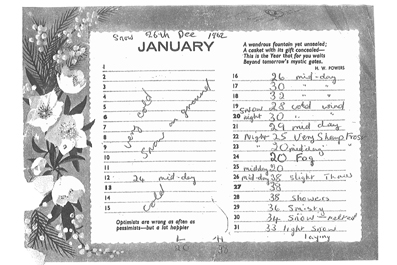 Snow 26th Dec 1962
JANUARY
1
2
3
4
5
6
7
8
9
10
11
12 24 mid-day
13
14
15
very cold
Snow on ground
cold
Optimists are wrong as often as
pessimists—but a lot happier
A wondrous fountain yet unsealed;
A casket with its gift concealed—
This is the Year that for you waits
Beyond tomorrow's mystic gates.
H. W. POWERS
16 26 mid-day
17 30 "
18 32 "
19 Snow 28 cold wind
20 night 30 " "
21 29 mid day
22 Night 25 Very Sharp Frost
23 " 20 midday
24 20 Fog
25 midday 20
26 mid-day 38 slight Thaw
27 38
28 38 showers
29 36 Smisty
30 34 Snow melted
31 33 light Snow
laying